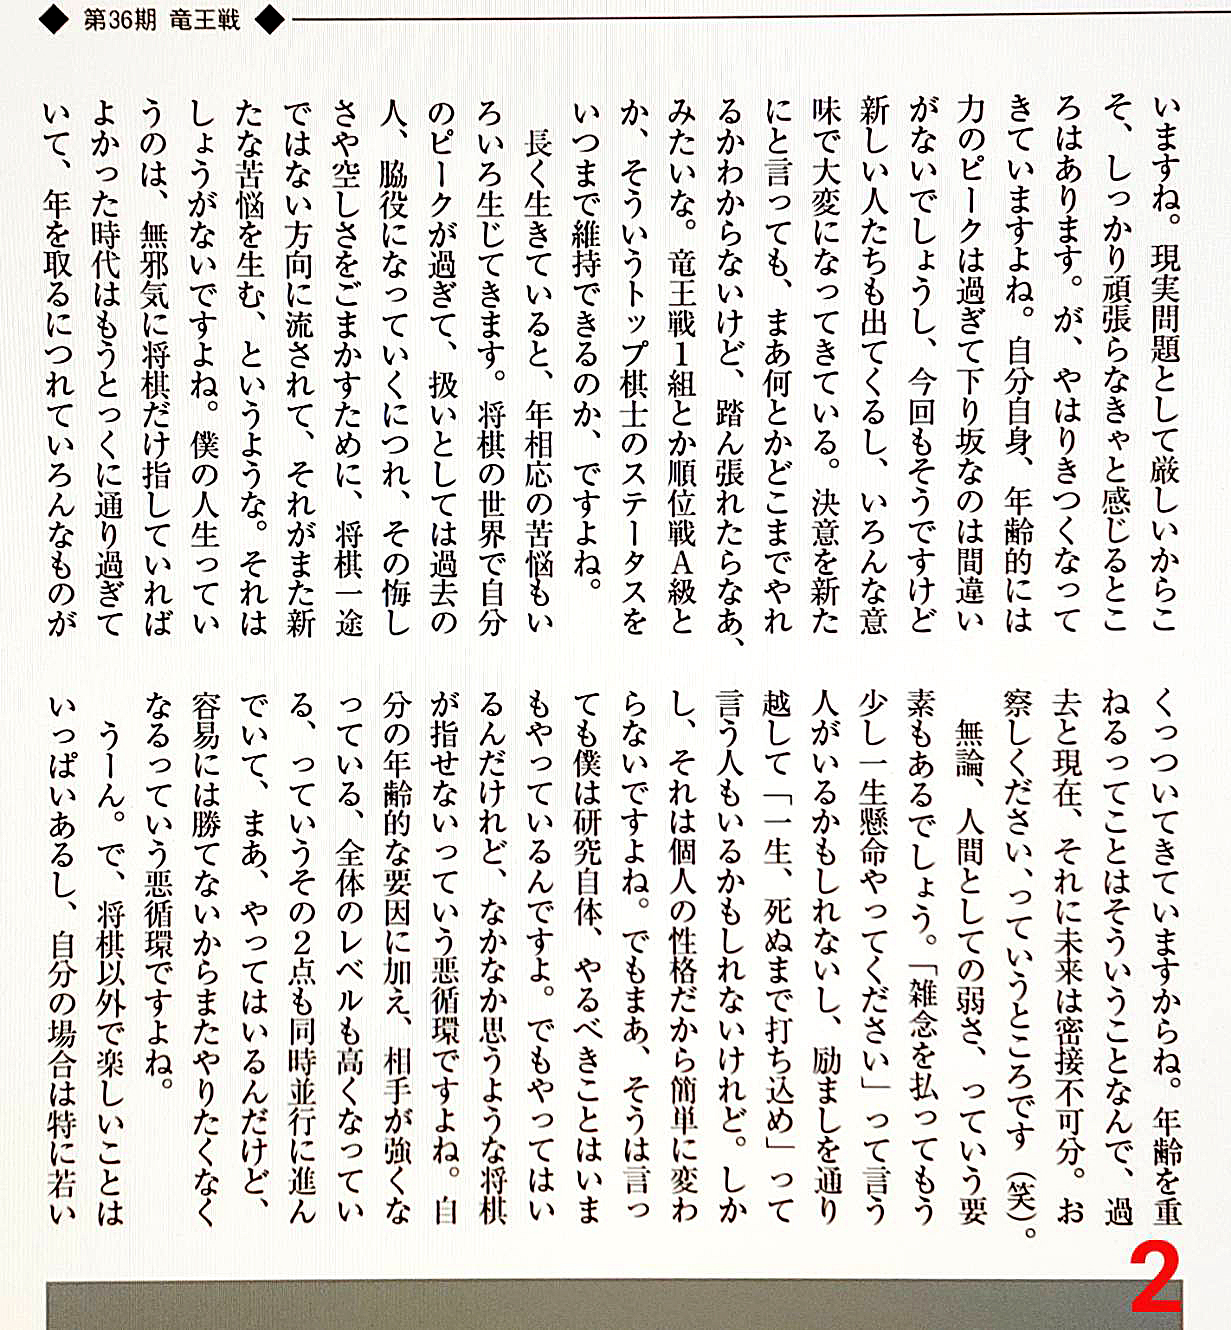 ◆ 第36期 竜王戦 ◆
いますね。現実問題として厳しいからこ
そ、しっかり頑張らなきゃと感じるとこ
ろはあります。が、やはりきつくなって
きていますよね。自分自身、年齢的には
力のピークは過ぎて下り坂なのは間違い
がないでしょうし、今回もそうですけど
新しい人たちも出てくるし、いろんな意
味で大変になってきている。決意を新た
にと言っても、まあ何とかどこまでやれ
るかわからないけど、踏ん張れたらなあ、
みたいな。竜王戦1組とか順位戦A級と
か、そういうトップ棋士のステータスを
いつまで維持できるのか、ですよね。
長く生きていると、年相応の苦悩もい
ろいろ生じてきます。将棋の世界で自分
のピークが過ぎて、扱いとしては過去の
人、脇役になっていくにつれ、その悔し
さや空しさをごまかすために、将棋一途
ではない方向に流されて、それがまた新
たな苦悩を生む、というような。それは
しょうがないですよね。僕の人生ってい
うのは、無邪気に将棋だけ指していれば
よかった時代はもうとっくに通り過ぎて
いて、年を取るにつれていろんなものが
くっついてきていますからね。年齢を重
ねるってことはそういうことなんで、過
去と現在、それに未来は密接不可分。お
察しください、っていうところです（笑）。
無論、人間としての弱さ、っていう要
素もあるでしょう。「雑念を払ってもう
少し一生懸命やってください」って言う
人がいるかもしれないし、励ましを通り
越して「一生、死ぬまで打ち込め」って
言う人もいるかもしれないけれど。しか
し、それは個人の性格だから簡単に変わ
らないですよね。でもまあ、そうは言っ
ても僕は研究自体、やるべきことはいま
もやっているんですよ。でもやってはい
るんだけれど、なかなか思うような将棋
が指せないっていう悪循環ですよね。自
分の年齢的な要因に加え、相手が強くな
っている、全体のレベルも高くなってい
る、っていうその2点も同時並行に進ん
でいて、まあ、やってはいるんだけど、
容易には勝てないからまたやりたくなく
なるっていう悪循環ですよね。
うーん。で、将棋以外で楽しいことは
いっぱいあるし、自分の場合は特に若い
2